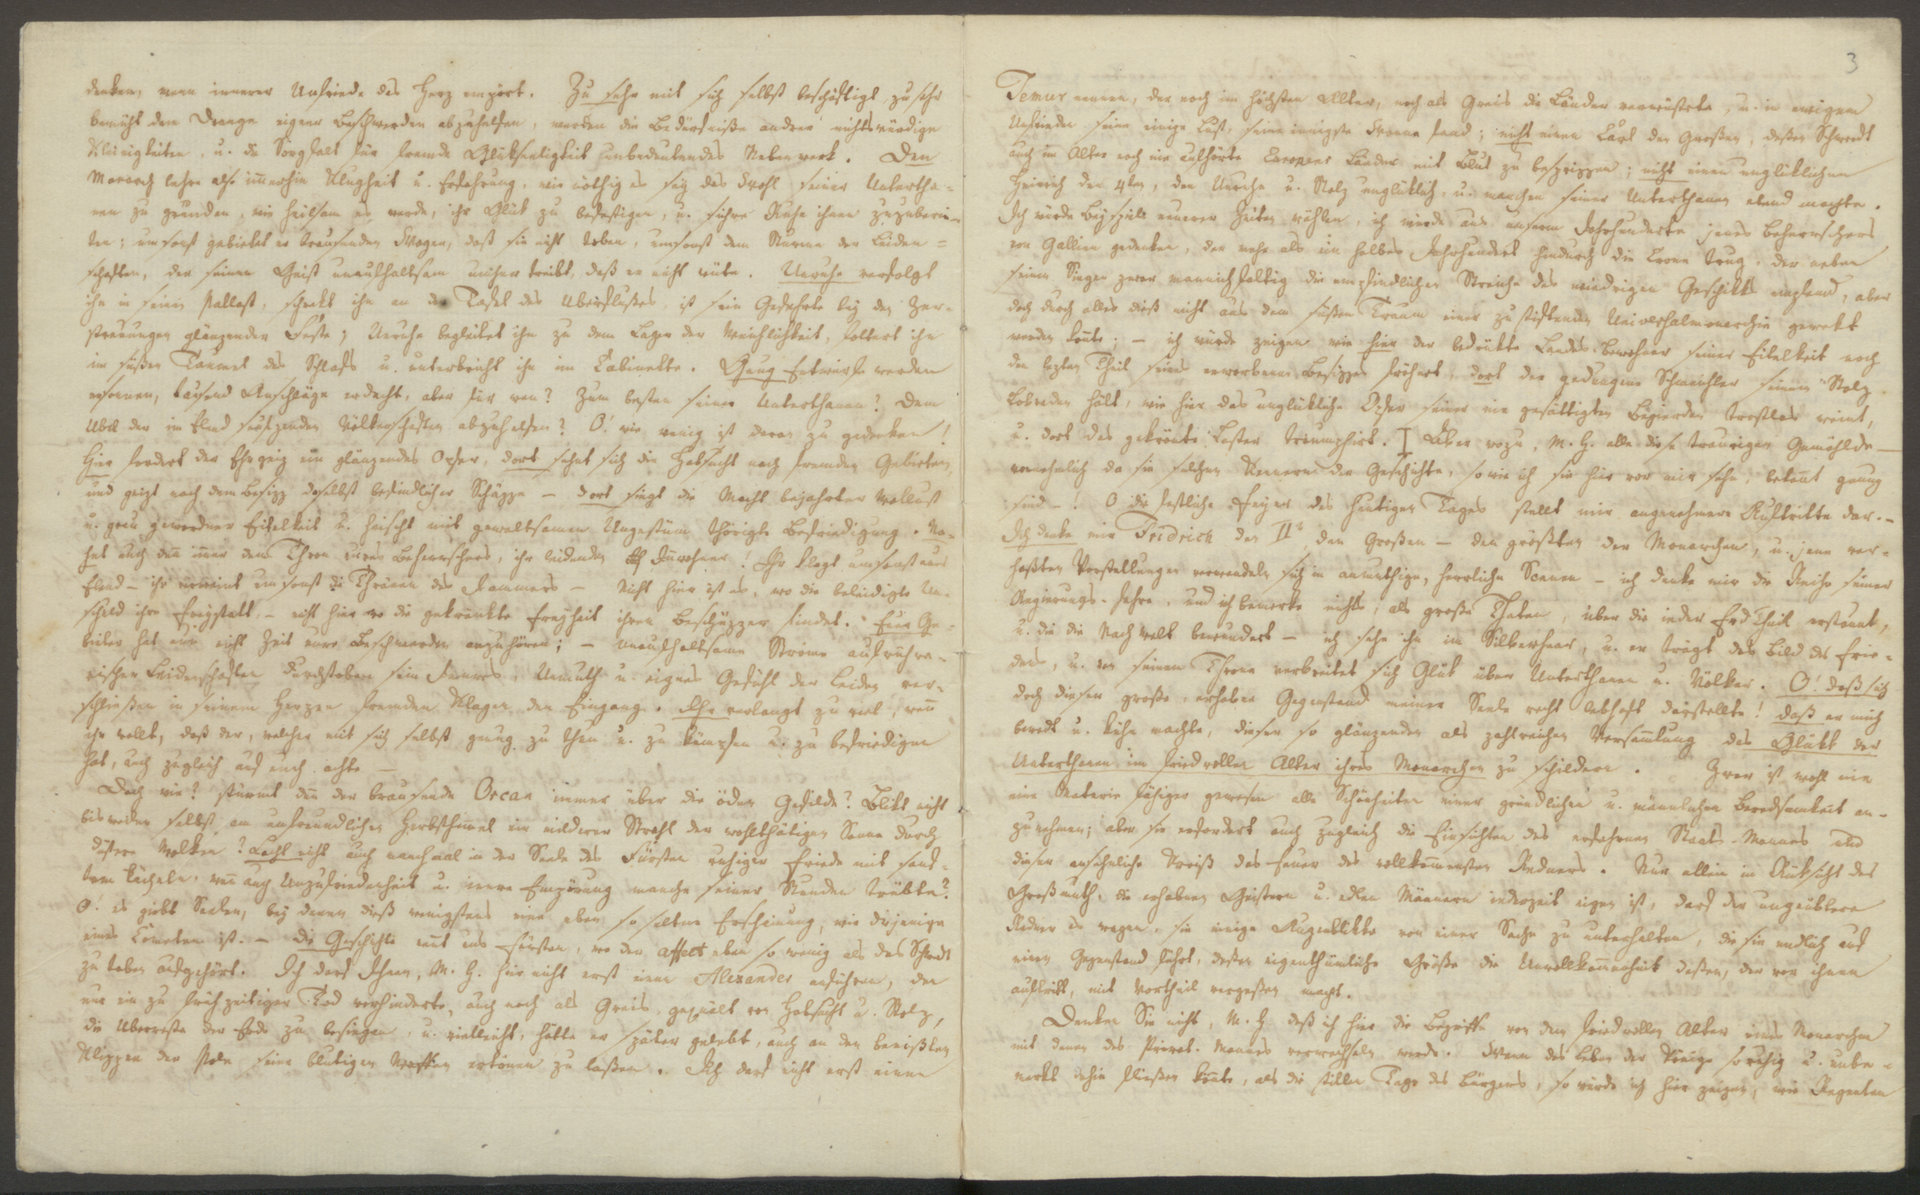 denken, wenn innerer Unfriede das Herz empört. Zu sehr mit sich selbst beschäftigt zu sehr
bemüht dem Drange eigener Beschwerden abzuhelfen, werden die Bedürfniße andrer nichtswürdige
Kleinigkeiten, u. die Sorgfalt für fremde Glükseeligkeit unbedeutendes Nebenwerk. Den
Monarch lehre also immerhin Klugheit u. Erfahrung, wie nöthig es sey das Wohl seiner Untertha-
nen zu gründen, wie heilsam es werde, ihr Glük zu befestigen, u. sichre Ruhe ihnen zuzuberei-
ten; umsonst gebietet er brausenden Wogen, daß sie nicht toben, umsonst dem Sturme der Leiden-
schaften, der seinen Geist unaufhaltsam umher treibt, daß er nicht wüte. Unruhe verfolgt
ihn in seinen Pallast, schrekt ihn an der Tafel des Überflußes ist sein Gefehrte bey den Zer-
streuungen glänzender Feste; Unruhe begleitet ihn zu dem Lager der Weichlichkeit, foltert ihn
im süßen Taumel des Schlafs u. unterbricht ihn im Cabinette. Gnug Entwürfe werden
ersonnen, tausend Anschläge erdacht, aber für wen? Zum besten seiner Unterthanen? Dem
Übel der im Elend seufzenden Völkerschaften abzuhelfen? O! wie wenig ist daran zu gedenken!
Hier fordert der Ehrgeiz ein glänzendes Opfer, dort sehnt sich die Habsucht nach fremden Gebieten,
und geizt nach dem Besizz daselbst befindlicher Schäzze – dort siegt die Macht bejahrter Wollust
u. grau gewordner Eitelkeit u. heischt mit gewaltsamem Ungestüm thörigte Befriedigung. Na-
het euch denn immer dem Thron eures Beherrschers, ihr leidenden Einwohner! Ihr klagt umsonst euer
Elend – ihr weint umsonst die Thränen des Jammers – Nicht hier ist es, wo die beleidigte Un-
schuld ihre Freystatt, – nicht hier wo die gekränkte Freyheit ihren Beschüzzer findet. Euer Ge-
bieter hat nicht Zeit eure Beschwerden anzuhören; – Unaufhaltsame Ströme aufrühre-
rischer Leidenschaften durchtoben sein Inneres, Unmuth u. eignes Gefühl der Leiden ver-
schließen in seinem Herzen fremden Klagen den Eingang. Ihr verlangt zu viel, wenn
ihr wollt, daß der, welcher mit sich selbst gnug zu thun u. zu kämpfen u. zu befriedigen
hat, auch zugleich auf euch achte –
Doch wie? stürmt denn der brausende Ocean immer über die öden Gefilde? Blikt nicht
bisweilen selbst am unfreundlichen Herbsthimmel ein milderer Strahl der wohlthätigen Sonne durch
düstere Wolken? Lacht nicht auch manchmal in der Seele des Fürsten ruhiger Friede mit sanf-
tem Lächeln, wenn auch Unzufriedenheit u. innere Empörung manche seiner Stunden trübte?
O! es giebt Seelen, bey denen dieß wenigstens eine eben so seltene Erscheinung, wie diejenige
eines Cometen ist. – die Geschichte nennt uns Fürsten, wo der affect eben so wenig als das Schwerdt
zu toben aufgehört. Ich darf Ihnen, M. H. hier nicht erst einen Alexander anführen, den
nur ein zu frühzeitiger Tod verhinderte, auch noch als Greis, gequält von Habsucht u. Stolz,
die Überreste der Erde zu besiegen, u. vielleicht, hätte er später gelebt, auch an den beeißten
Klippen der Pole seine blutigen Waffen ertönen zu laßen. Ich darf nicht erst einen
3
Temur nennen, der noch im höchsten Alter, noch als Greis die Länder verwüstete, u. in ewigem
Unfrieden seine einige Lust, seine innigste Wonne fand; nicht einen Carl den Großen, deßen Schwerdt
auch im Alter noch nie aufhörte Europens Länder mit Blut zu besprizzen; nicht einen unglüklichen
Heinrich den 4ten, den Unruhe u. Stolz unglüklich, u. manchen seiner Unterthanen elend machte.
Ich würde Beyspiele neuerer Zeiten wählen, ich würde aus unserm Jahrhunderte jenes Beherrschers
von Gallien gedenken, der mehr als ein halbes Jahrhundert hindurch die Krone trug, der neben
seinen Siegen zwar mannichfaltig die empfindlichen Streiche des widrigen Geschiks empfand, aber
doch durch alles dieß nicht aus dem süßen Traum einer zu stiftenden Universalmonarchie gewekt
werden konnte; – ich würde zeigen wie hier der bedrükte Landes-Bewohner seiner Eitelkeit noch
den lezten Theil seines erworbenen Besizzes fröhnet, dort der gedungene Schmeichler seinem Stolz
Lobreden hält, wie hier das unglükliche Opfer seiner nie gesättigten Begierden trostlos weint,
u. dort das gekrönte Laster triumphirt. Aber wozu, M. H. alle diese traurigen Gemählde –
vornehmlich da sie solchen Kennern der Geschichte, so wie ich sie hier vor mir sehe, bekannt gnug
sind –! O die festliche Feyer des heutigen Tages stellt mir angenehmere Auftritte dar. –
Ich denke mir Fridrich den IIt den Großen – den größten der Monarchen, u. jene ver-
haßten Vorstellungen verwandeln sich in anmuthige, herrliche Scenen – ich denke mir die Reihe seiner
Regierungs-Jahre, und ich bemerke nichts, als große Thaten, über die ieder ErdTheil erstaunt,
u. die die Nachwelt bewundert – ich sehe ihn im Silberhaar, u. er trägt das Bild des Frie-
dens, u. von seinem Throne verbreitet sich Glük über Unterthanen u. Völker. O! daß sich
doch dieser große, erhabne Gegenstand meiner Seele recht lebhaft darstellte! daß er mich
beredt u. kühn machte, dieser so glänzenden als zahlreichen Versammlung das Glükk der
Unterthanen im friedvollen Alter ihres Monarchen zu schildern. Zwar ist wohl nie
eine Materie fähiger gewesen alle Schönheiten einer gründlichen u. männlichen Beredsamkeit an-
zunehmen; aber sie erfordert auch zugleich die Einsichten des erfahrnen Staats-Mannes und
dieser ansehnliche Kreiß das Feuer des vollkommensten Redners. Nur allein in Rüksicht des
Großmuth, die erhabnen Geistern u. edlen Männern iederzeit eigen ist, darf der ungeübtere
Redner es wagen, sie einige Augenblikke von einer Sache zu unterhalten, die sie endlich auf
einen Gegenstand führt, deßen eigenthümliche Größe die Unvollkommenheit deßen, der vor ihnen
auftritt, mit Vortheil vergeßen macht.
Denken Sie nicht, M. H. daß ich hier die Begriffe von dem friedvollen Alter eines Monarchen
mit denen des Privat-Mannes verwechseln werde. Wenn das Leben der Könige so ruhig u. unbe-
merkt dahin fließen könnte, als die stillen Tage des Bürgers, so würde ich hier zeigen, wie Regenten